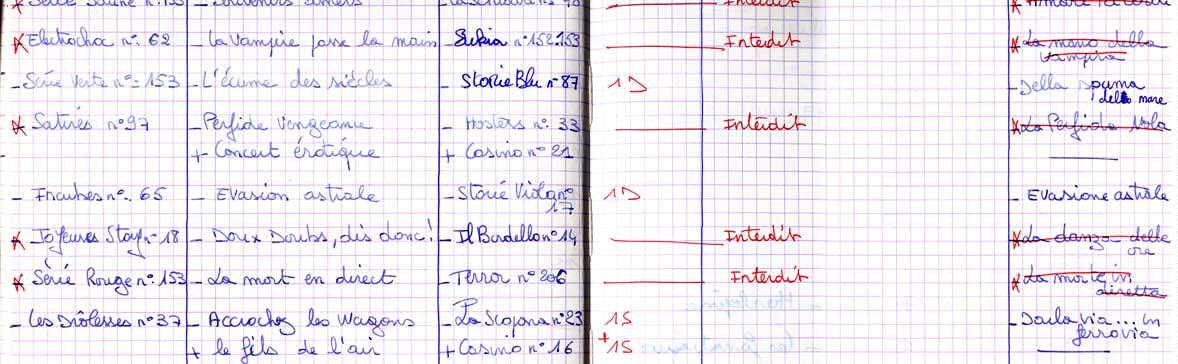 Interdit
* Electrocha n°. 62 - La Vampire passe la main - Sukia n° 152.153 Interdit * La mano della
Vampira
- Série Verte n° - 153 - L'écume des siècles - Storie Blu n° 87 1D - Della spuma
della mare
* Satires n°97 - Perfide Vengeance - Hosters n°. 33 Interdit * La Perfida
+ Concert érotique + Casino n° 21
- Incubes n°. 65 - Evasion astrale - Storie Viola n° 1D - Evasione astrale
17
* Joyeuses n° 18 - Doux Doubs, dis donc! - Il Bordello n° 14 Interdit * La danza delle
ore
* Série Rouge n° 153 - La mort en direct - Terror n° 206 Interdit * La morte in
diretta
- Les Drôlesses n° 37 - Accrochez les Wagons - La n° 23 1S - via... in
ferrovia
+ le fils de l'air + Casino n° 16 + 1S